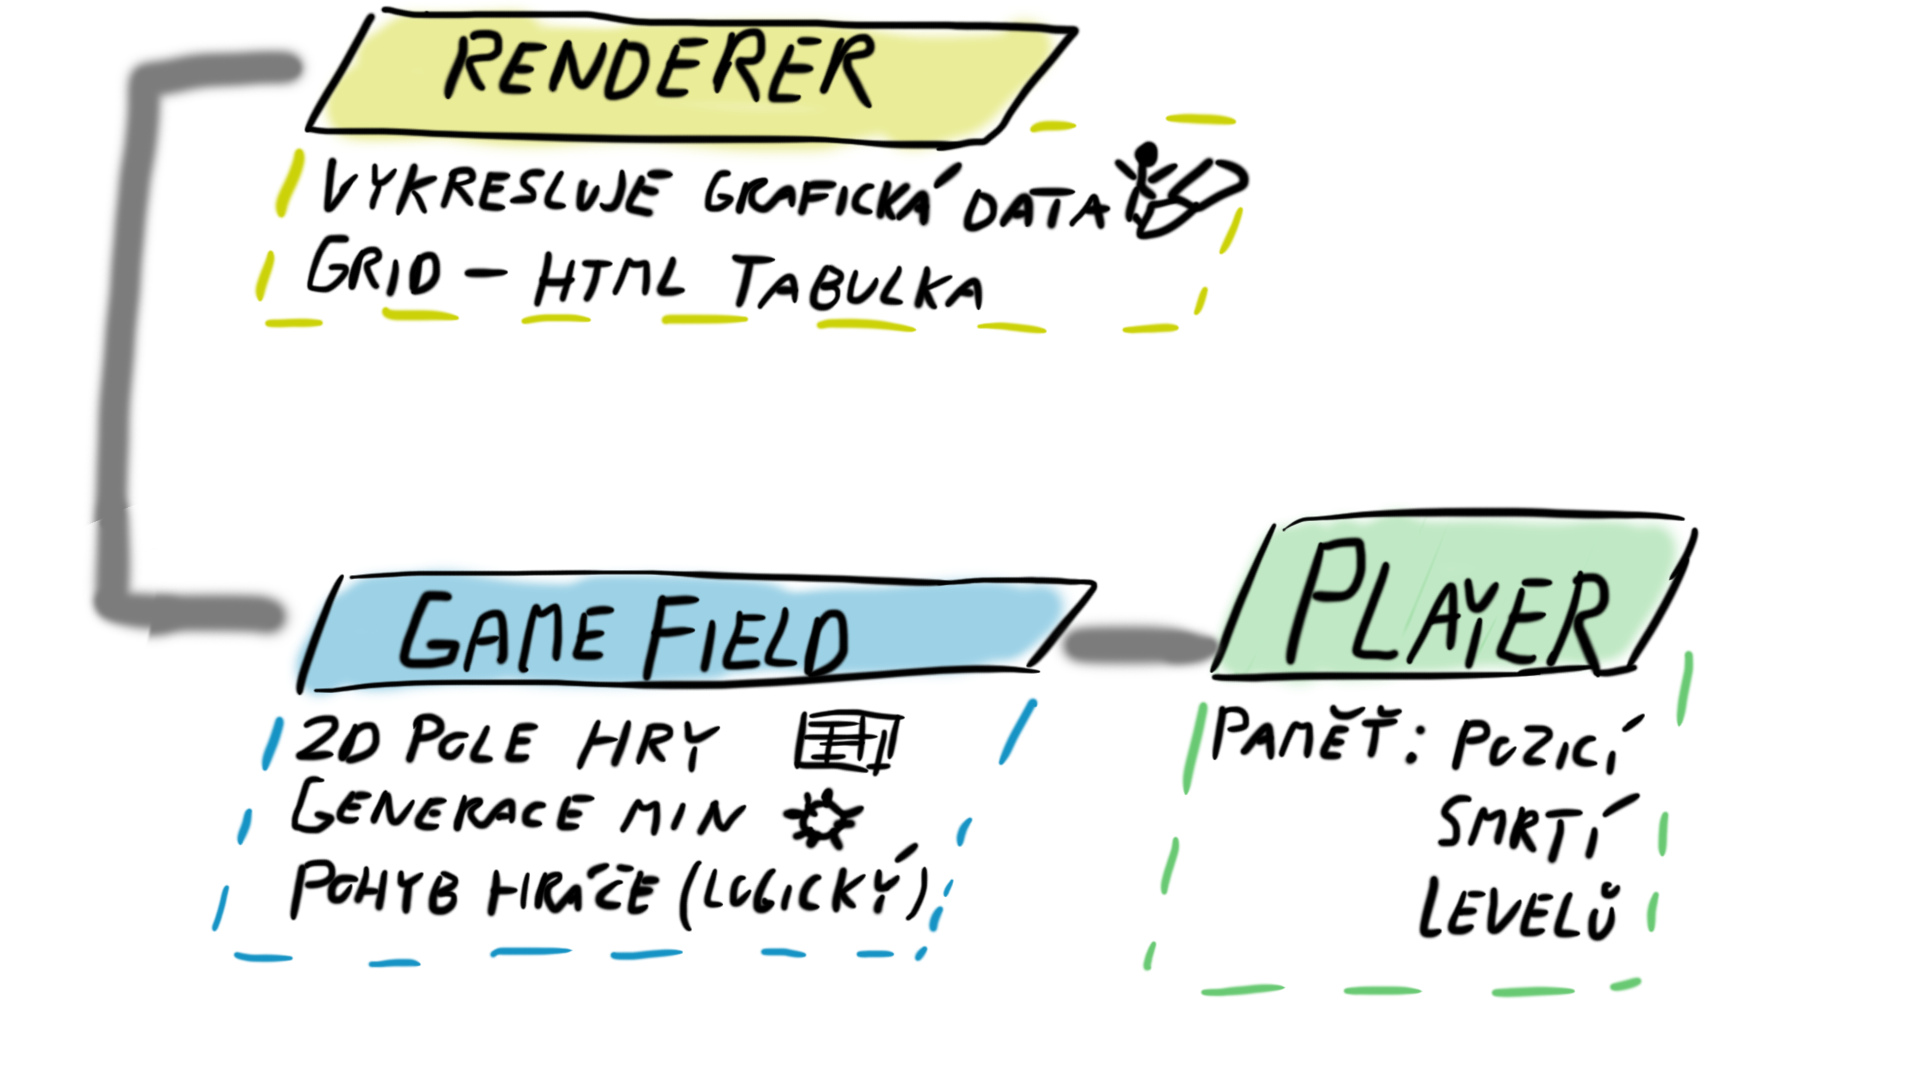 RENDERER
VYKRESLUJE GRAFICKÁ DATA
GRID - HTML TABULKA
GAME FIELD
2D POLE HRY
GENERACE MIN
POHYB HRÁČE (LOGICKÝ)
PLAYER
PAMĚŤ: POZICÍ
SMRTÍ
LEVELŮ